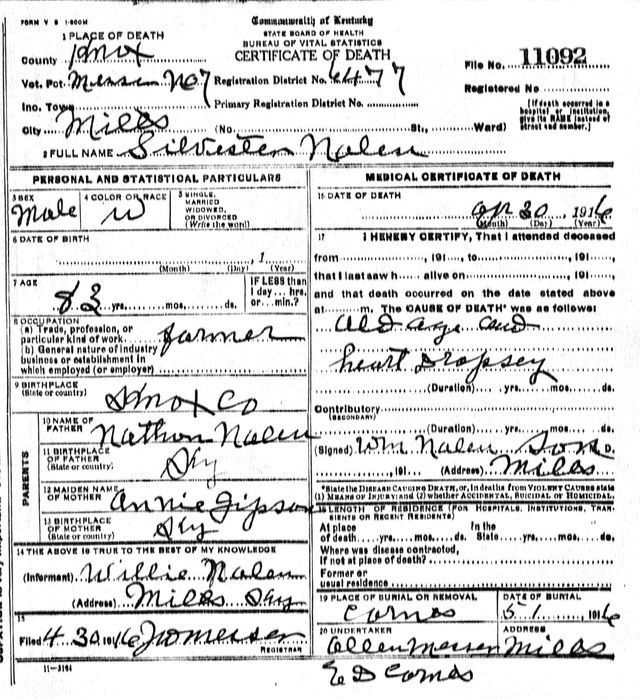 FORM V S 1-500M
Commonwealth of Kentucky
STATE BOARD OF HEALTH
BUREAU OF VITAL STATISTICS
CERTIFICATE OF DEATH
1 PLACE OF DEATH
County Knox
File No. 11092
Vot. Pct. Messer No 7 Registration District No. 6477
Registered No
Inc. Town Primary Registration District No.
City Mills (No. St., Ward)
(If death occurred in a hospital or institution, give its NAME instead of street and number.)
2 FULL NAME Silvester Nalen
PERSONAL AND STATISTICAL PARTICULARS
3 SEX Male
4 COLOR OR RACE W
5 SINGLE, MARRIED WIDOWED, OR DIVORCED (Write the word)
6 DATE OF BIRTH
, 1
(Month) (Day) (Year)
7 AGE
83 yrs. mos. ds.
IF LESS than 1 day... hrs. or... min.?
8 OCCUPATION
(a) Trade, profession, or particular kind of work farmer
(b) General nature of industry business or establishment in which employed (or employer)
9 BIRTHPLACE
(State or country) Knox Co
PARENTS
10 NAME OF FATHER Nathon Nalen
11 BIRTHPLACE OF FATHER (State or country) Ky
12 MAIDEN NAME OF MOTHER Annie Jipson
13 BIRTHPLACE OF MOTHER (State or country) Ky
14 THE ABOVE IS TRUE TO THE BEST OF MY KNOWLEDGE
(Informant) Willie Nalen
(Address) Mills Ky
15
Filed 4 30 1916 Messer
REGISTRAR
11-3184
MEDICAL CERTIFICATE OF DEATH
16 DATE OF DEATH
apr 30, 1916
(Month) (Day) (Year)
17 I HEREBY CERTIFY, That I attended deceased
from , 191 , to , 191 ,
that I last saw h alive on , 191 ,
and that death occurred on the date stated above
at m. The CAUSE OF DEATH* was as follows:
old age and
heart Dropsey
(Duration) yrs. mos. ds.
Contributory
(SECONDARY)
(Duration) yrs. mos. ds.
(Signed) Wm Nalen Son D.
, 191 (Address) Mills
*State the DISEASE CAUSING DEATH, or, in deaths from VIOLENT CAUSES state (1) MEANS OF INJURY; and (2) whether ACCIDENTAL, SUICIDAL or HOMICIDAL.
LENGTH OF RESIDENCE (FOR HOSPITALS, INSTITUTIONS, TRANSIENTS OR RECENT RESIDENTS)
At place of death yrs. mos. ds. In the State yrs. mos. ds.
Where was disease contracted,
If not at place of death?
Former or
usual residence
19 PLACE OF BURIAL OR REMOVAL
Cornes
DATE OF BURIAL
5 1 1916
20 UNDERTAKER
Allen Messer
ADDRESS
Mills
E D Cornes